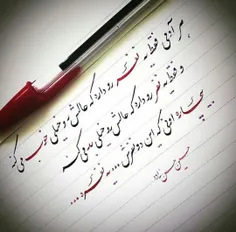 هر آدمی فقط یه نفر رو داره که حالش رو خیلی خوب می کنه
و فقط یه نفر رو داره که حالش رو خیلی بد می کنه
بیچاره اونی که این دو نفرش ... یه نفره ...
حسین حسن زاده